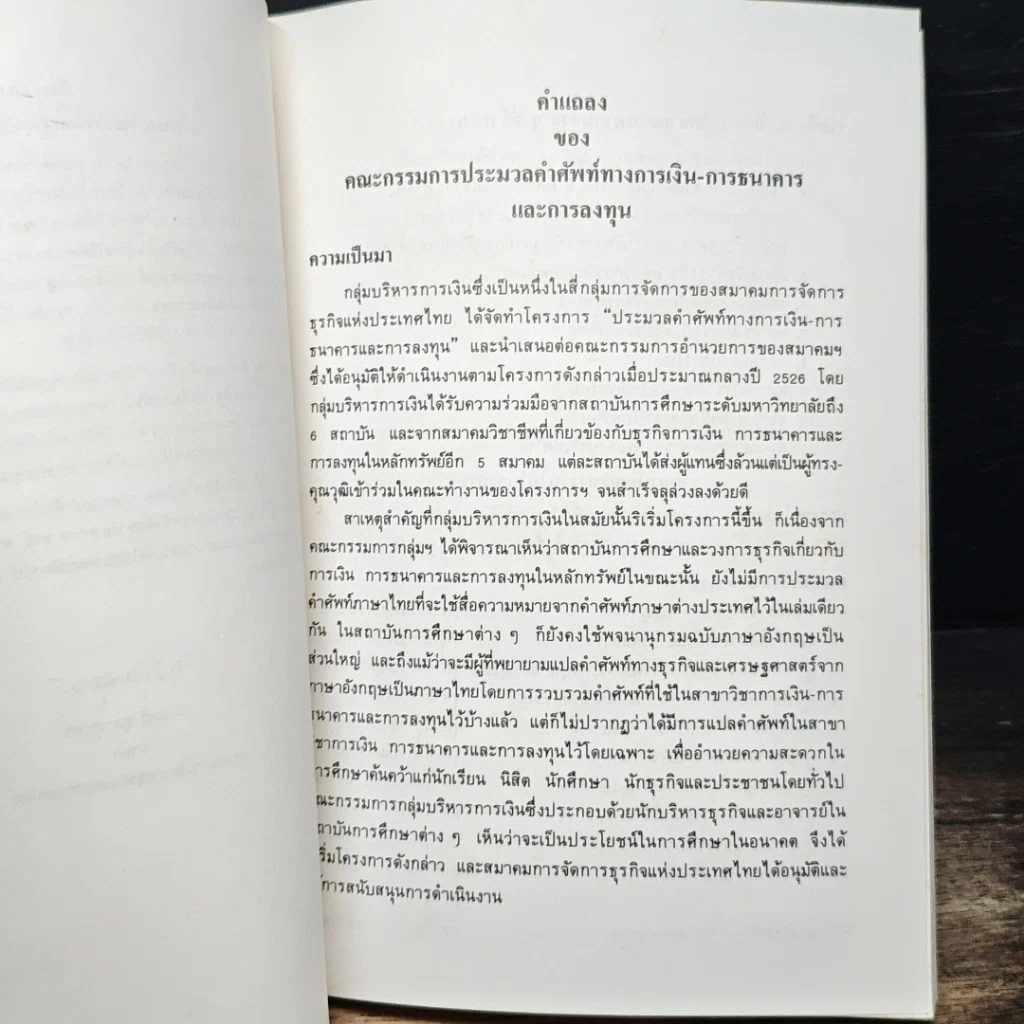 คำแถลง
ของ
คณะกรรมการประมวลคำศัพท์ทางการเงิน-การธนาคาร
และการลงทุน
ความเป็นมา
กลุ่มบริหารการเงินซึ่งเป็นหนึ่งในสี่กลุ่มการจัดการของสมาคมการจัดการ
ธุรกิจแห่งประเทศไทย ได้จัดทำโครงการ “ประมวลคำศัพท์ทางการเงิน-การ
ธนาคารและการลงทุน” และนำเสนอต่อคณะกรรมการอำนวยการของสมาคมฯ
ซึ่งได้อนุมัติให้ดำเนินงานตามโครงการดังกล่าวเมื่อประมาณกลางปี 2526 โดย
กลุ่มบริหารการเงินได้รับความร่วมมือจากสถาบันการศึกษาระดับมหาวิทยาลัยถึง
6 สถาบัน และจากสมาคมวิชาชีพที่เกี่ยวข้องกับธุรกิจการเงิน การธนาคารและ
การลงทุนในหลักทรัพย์อีก 5 สมาคม แต่ละสถาบันได้ส่งผู้แทนซึ่งล้วนแต่เป็นผู้ทรง-
คุณวุฒิเข้าร่วมในคณะทำงานของโครงการฯ จนสำเร็จลุล่วงลงด้วยดี
สาเหตุสำคัญที่กลุ่มบริหารการเงินในสมัยนั้นริเริ่มโครงการนี้ขึ้น ก็เนื่องจาก
คณะกรรมการกลุ่มฯ ได้พิจารณาเห็นว่าสถาบันการศึกษาและวงการธุรกิจเกี่ยวกับ
การเงิน การธนาคารและการลงทุนในหลักทรัพย์ในขณะนั้น ยังไม่มีการประมวล
คำศัพท์ภาษาไทยที่จะใช้สื่อความหมายจากคำศัพท์ภาษาต่างประเทศไว้ในเล่มเดียว
กัน ในสถาบันการศึกษาต่าง ๆ ก็ยังคงใช้พจนานุกรมฉบับภาษาอังกฤษเป็น
ส่วนใหญ่ และถึงแม้ว่าจะมีผู้ที่พยายามแปลคำศัพท์ทางธุรกิจและเศรษฐศาสตร์จาก
ภาษาอังกฤษเป็นภาษาไทยโดยการรวบรวมคำศัพท์ที่ใช้ในสาขาวิชาการเงิน-การ
ธนาคารและการลงทุนไว้บ้างแล้ว แต่ก็ไม่ปรากฏว่าได้มีการแปลคำศัพท์ในสาขา
วิชาการเงิน การธนาคารและการลงทุนไว้โดยเฉพาะ เพื่ออำนวยความสะดวกใน
การศึกษาค้นคว้าแก่นักเรียน นิสิต นักศึกษา นักธุรกิจและประชาชนโดยทั่วไป
คณะกรรมการกลุ่มบริหารการเงินซึ่งประกอบด้วยนักบริหารธุรกิจและอาจารย์ใน
สถาบันการศึกษาต่าง ๆ เห็นว่าจะเป็นประโยชน์ในการศึกษาในอนาคต จึงได้
ริเริ่มโครงการดังกล่าว และสมาคมการจัดการธุรกิจแห่งประเทศไทยได้อนุมัติและ
ให้การสนับสนุนการดำเนินงาน